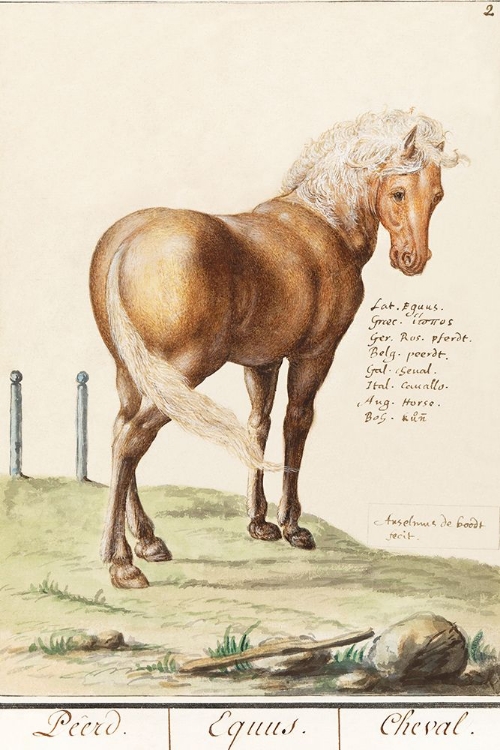 2
Lat. Equus.
Græc. ἵππος
Ger. Ros. pferdt.
Belg. peerdt.
Gal. cheval.
Ital. Cavallo.
Ang. Horse.
Boh. kůň
Anselmus de boodt
fecit.
Peerd. Equus. Cheval.